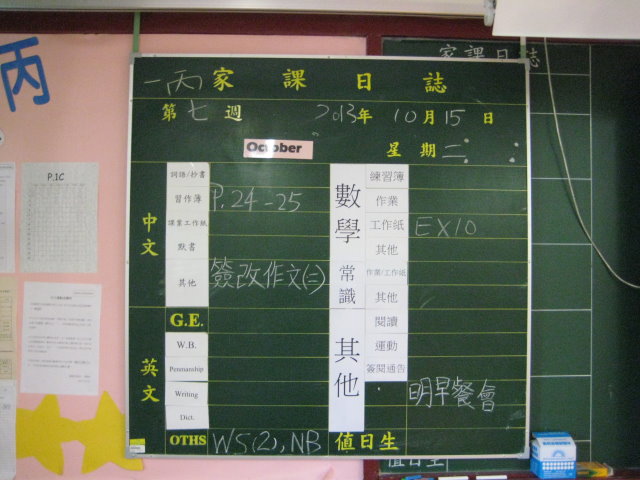 家課日誌
丙
一丙家課日誌
第七週 2013年10月15日
October 星期二
P.1C
中文
詞語/抄書
習作簿 P.24-25
課業工作紙
默書
其他 簽改作文(二)
數學
練習簿
作業
工作紙 EX10
其他
常識
作業/工作紙
其他
英文
G.E.
W.B.
Penmanship
Writing
Dict.
OTHS WS(2), NB
其他
閱讀
運動
簽閱通告
明早餐會
值日生
值日生